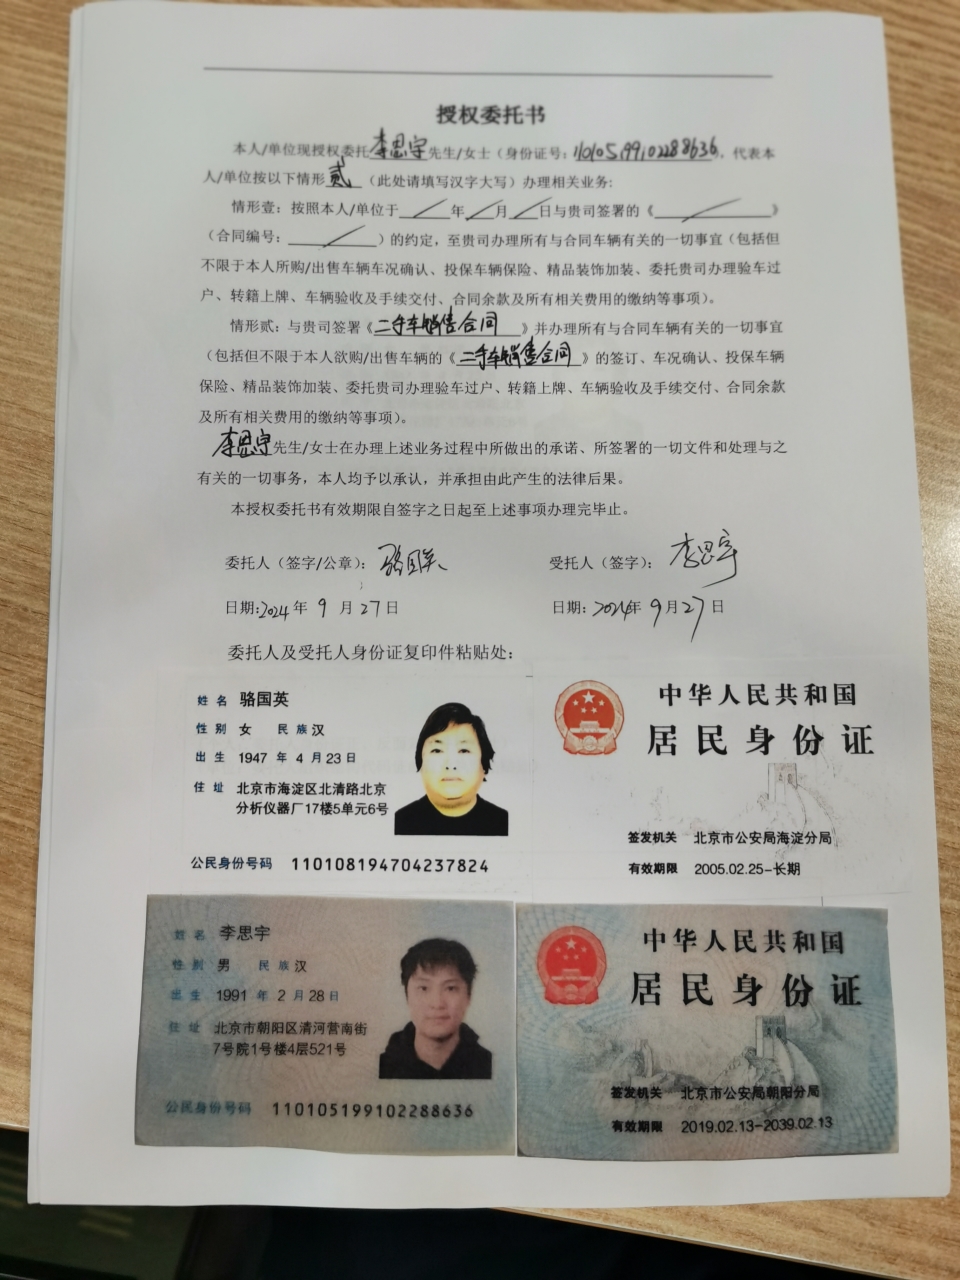 授权委托书
本人/单位现授权委托李思宇先生/女士（身份证号：110105199102288636），代表本
人/单位按以下情形贰（此处请填写汉字大写）办理相关业务：
情形壹：按照本人/单位于／年／月／日与贵司签署的《／》
（合同编号：／）的约定，至贵司办理所有与合同车辆有关的一切事宜（包括但
不限于本人所购/出售车辆车况确认、投保车辆保险、精品装饰加装、委托贵司办理验车过
户、转籍上牌、车辆验收及手续交付、合同余款及所有相关费用的缴纳等事项）。
情形贰：与贵司签署《二手车销售合同》并办理所有与合同车辆有关的一切事宜
（包括但不限于本人欲购/出售车辆的《二手车销售合同》的签订、车况确认、投保车辆
保险、精品装饰加装、委托贵司办理验车过户、转籍上牌、车辆验收及手续交付、合同余款
及所有相关费用的缴纳等事项）。
李思宇先生/女士在办理上述业务过程中所做出的承诺、所签署的一切文件和处理与之
有关的一切事务，本人均予以承认，并承担由此产生的法律后果。
本授权委托书有效期限自签字之日起至上述事项办理完毕止。
委托人（签字/公章）：骆国英 受托人（签字）：李思宇
日期：2024年9月27日 日期：2024年9月27日
委托人及受托人身份证复印件粘贴处：
姓名 骆国英
性别 女 民族 汉
出生 1947年4月23日
住址 北京市海淀区北清路北京
分析仪器厂17楼5单元6号
公民身份号码 110108194704237824
中华人民共和国
居民身份证
签发机关 北京市公安局海淀分局
有效期限 2005.02.25-长期
姓名 李思宇
性别 男 民族 汉
出生 1991年2月28日
住址 北京市朝阳区清河营南街
7号院1号楼4层521号
公民身份号码 110105199102288636
中华人民共和国
居民身份证
签发机关 北京市公安局朝阳分局
有效期限 2019.02.13-2039.02.13